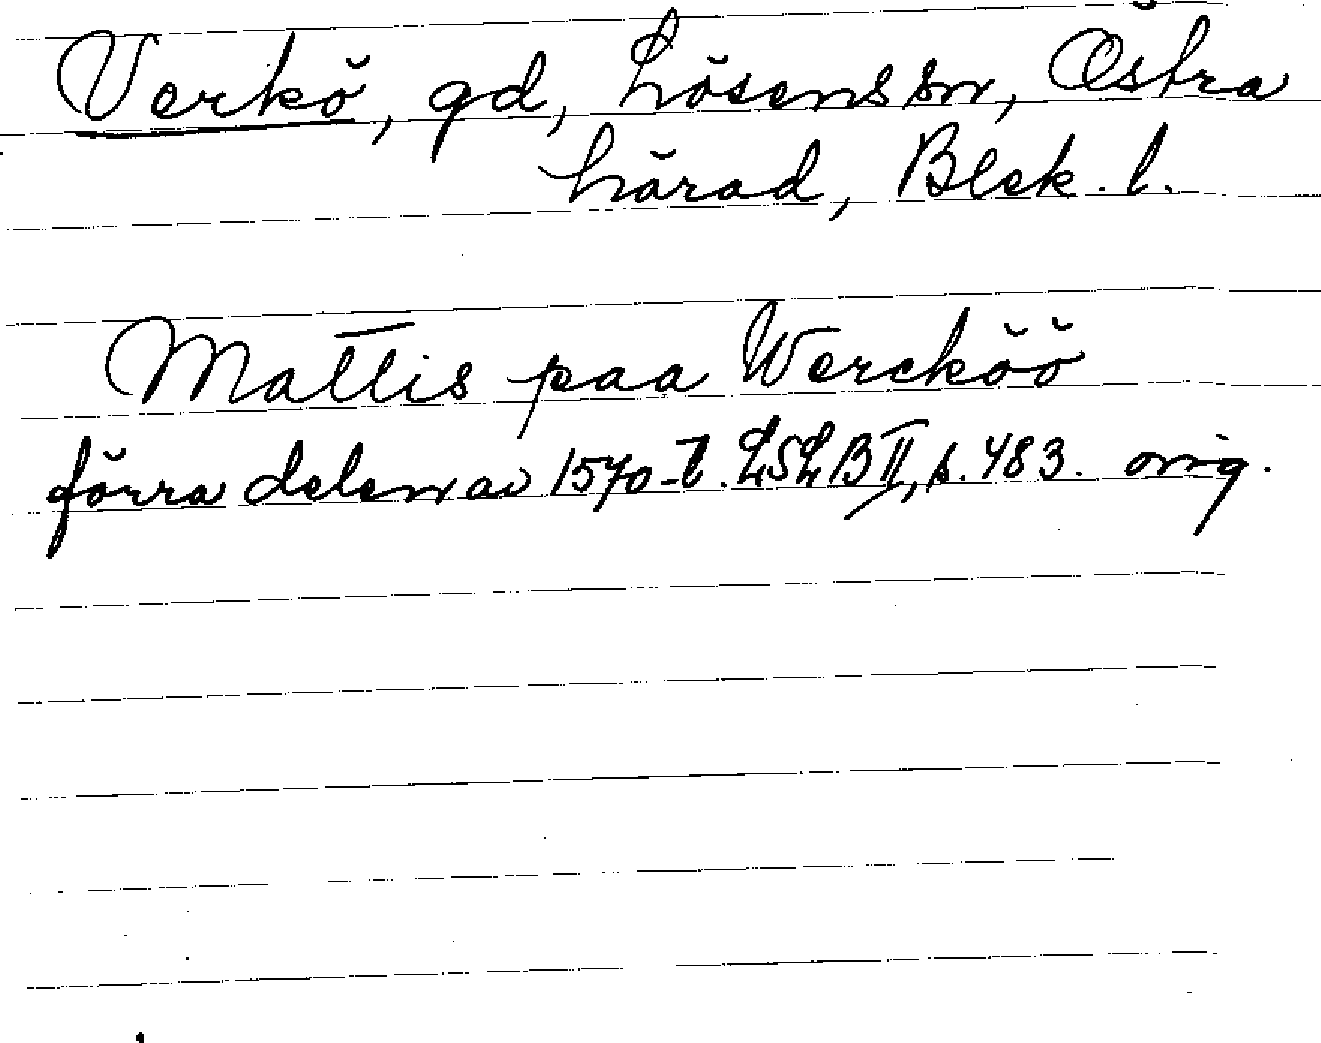 Verkö, gd, Lösens sn, Östra
härad, Blek. l.
Mattis paa Wercköö
förra delen av 1570-t. LSLB II, s. 483. orig.